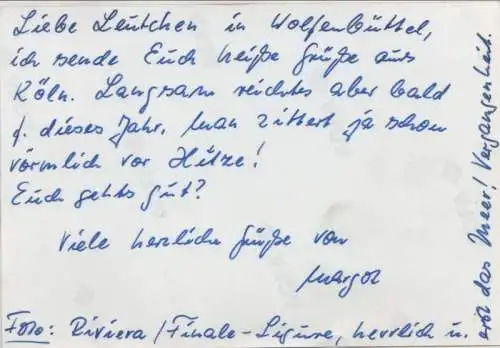 Liebe Leutchen in Wolfenbüttel,
ich sende Euch heiße Grüße aus
Köln. Langsam reichts aber bald
f. dieses Jahr. Man zittert ja schon
förmlich vor Hitze!
Euch gehts gut?
Viele herzliche Grüße von
Margot
Foto: Riviera / Finale-Ligure, herrlich u.
erst das Meer! Vergangenheit.